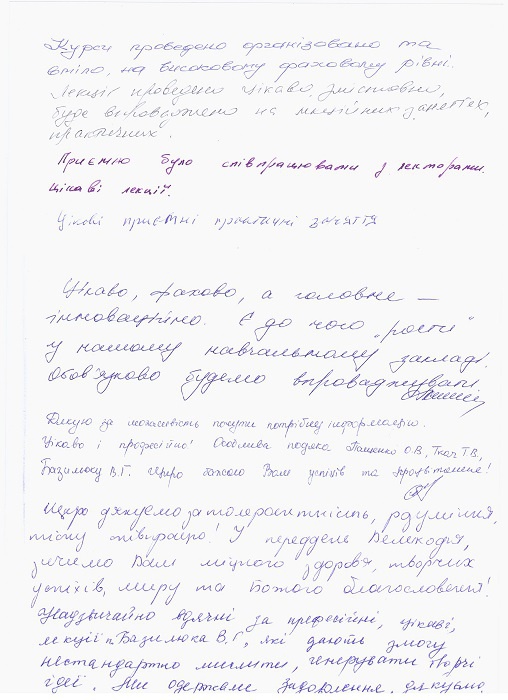 Курси проведено організовано та
вміло, на високому фаховому рівні.
Лекції проведено цікаво, змістовно,
буде впроваджено на лекційних заняттях,
практичних.
Приємно було співпрацювати з лекторами.
Цікаві лекції.
Цікаві приємні практичні заняття
Цікаво, фахово, а головне –
інноваційно. Є до чого „рости"
у нашому навчальному закладі.
Обов'язково будемо впроваджувати.
Дякую за можливість почути потрібну інформацію.
Цікаво і професійно! Особлива подяка О.В., Ткач Т.В.,
Базилюку В.Г. Щиро бажаю Вам успіхів та процвітання!
Щиро дякуємо за толерантність, розуміння,
тісну співпрацю! У переддень Великодня,
зичимо Вам міцного здоров'я, творчих
успіхів, миру та Божого благословення!
Надзвичайно вдячні за професійні, цікаві,
лекції п. Базилюка В.Г., які дають змогу
нестандартно мислити, генерувати творчі
ідеї. Ми одержали задоволення, дякуємо